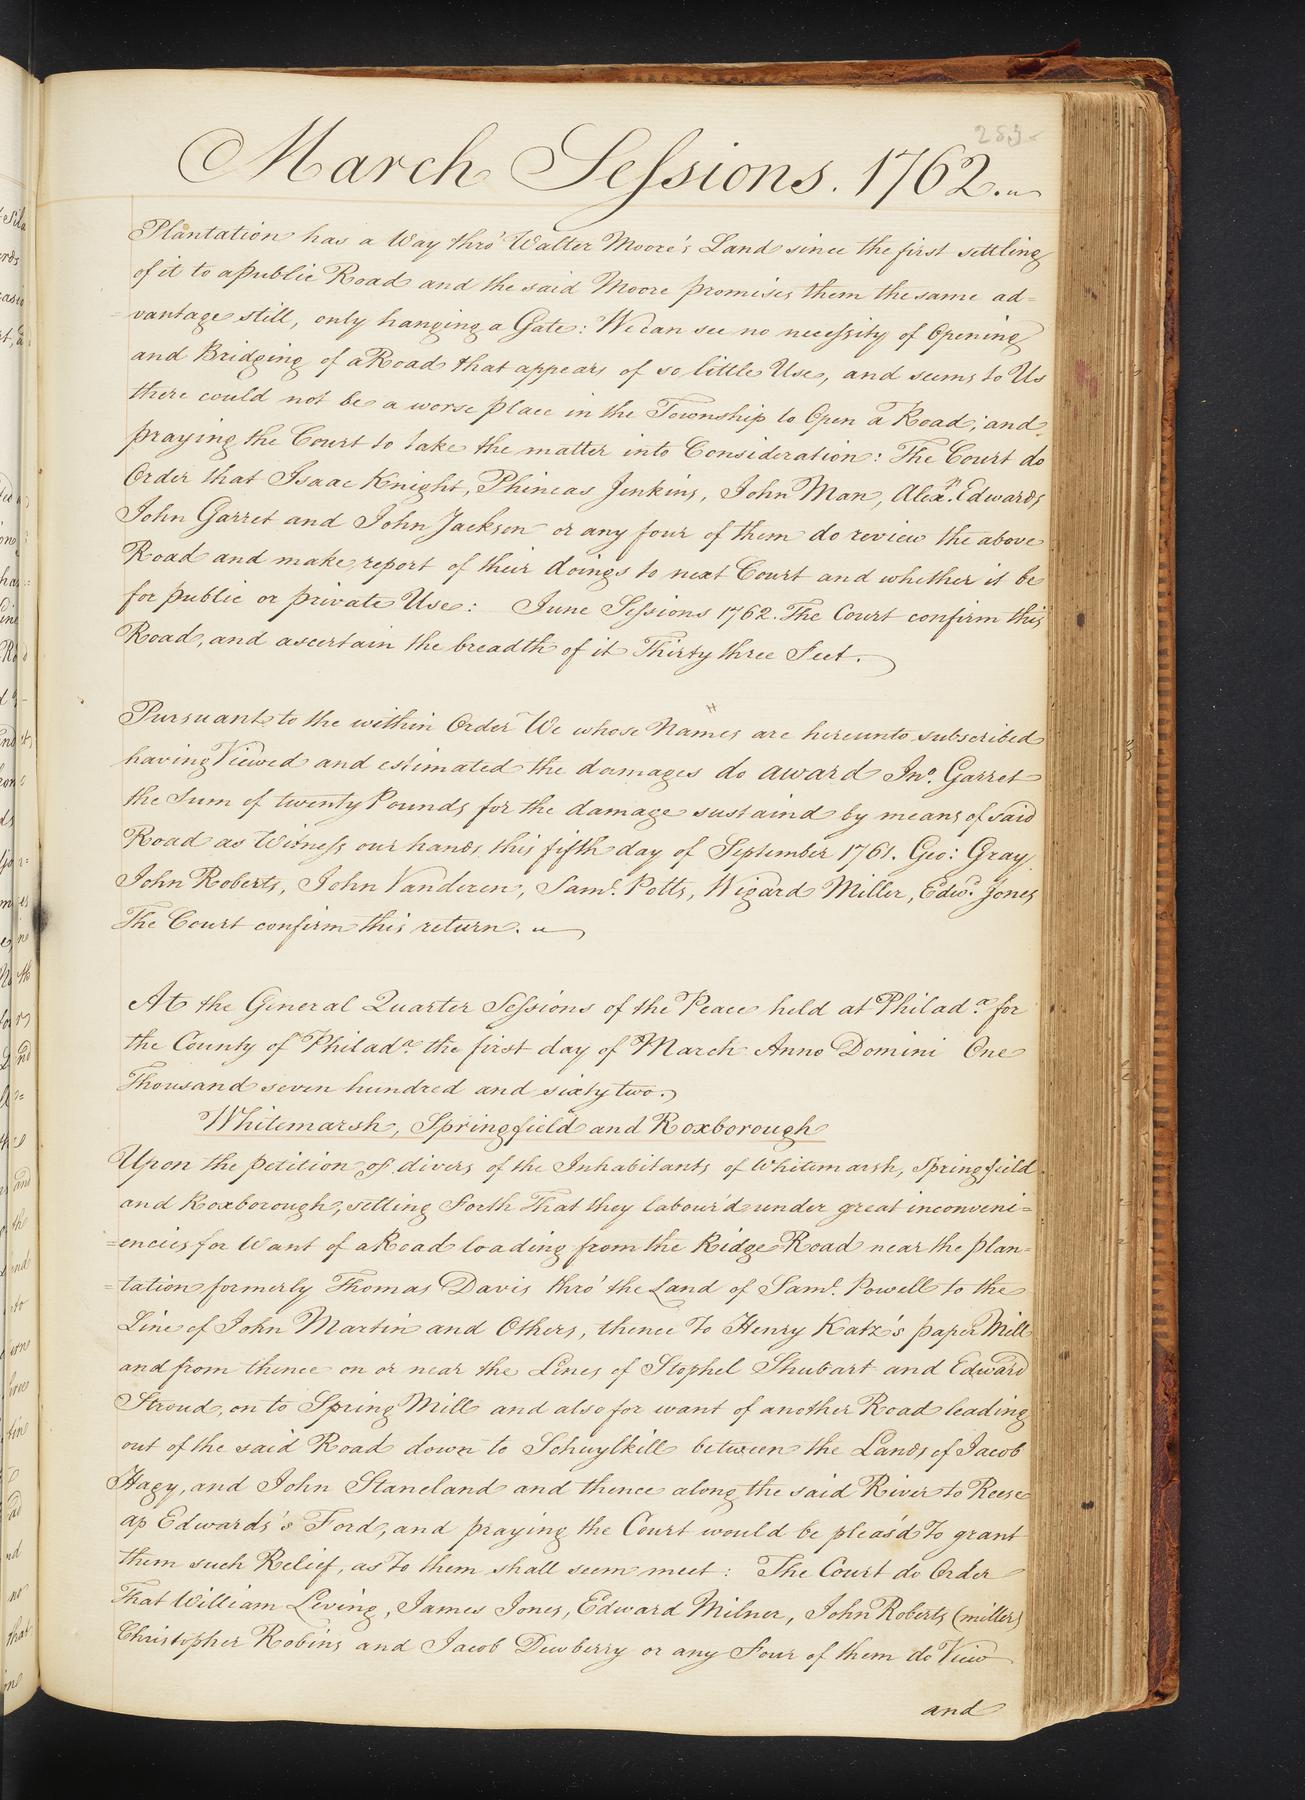 253
March Sessions. 1762.
Plantation has a Way thro' Walter Moore's Land since the first settling
of it to a public Road and the said Moore promises them the same ad=
vantage still, only hanging a Gate: We can see no necessity of Opening
and Bridging of a Road that appears of so little Use, and seems to Us
there could not be a worse place in the Township to Open a Road; and
praying the Court to take the matter into Consideration: The Court do
Order that Isaac Knight, Phineas Jenkins, John Man, Alexr. Edwards
John Garret and John Jackson or any four of them do review the above
Road and make report of their doings to next Court and whether it be
for public or private Use: June Sessions 1762. The Court confirm this
Road, and ascertain the breadth of it Thirty three Feet.
Pursuant to the within Order We whose Names are hereunto subscribed
having Viewed and estimated the damages do award Jno. Garret
the Sum of twenty Pounds for the damage sustaind by means of said
Road as Witness our hands this fifth day of September 1761. Geo: Gray
John Roberts, John Vanderen, Saml. Potts, Wigard Miller, Edwd. Jones
The Court confirm this return.
At the General Quarter Sessions of the Peace held at Philada. for
the County of Philada. the first day of March Anno Domini One
Thousand seven hundred and sixty two.
Whitemarsh, Springfield and Roxborough
Upon the petition of divers of the Inhabitants of Whitemarsh, Springfield
and Roxborough, setting Forth That they labour'd under great inconveni=
=encies for Want of a Road leading from the Ridge Road near the plan=
=tation formerly Thomas Davis thro' the Land of Saml. Powell to the
Line of John Martin and Others, thence To Henry Katz's paper Mill
and from thence on or near the Lines of Stophel Shubart and Edward
Stroud, on to Spring Mill and also for want of another Road leading
out of the said Road down to Schuylkill between the Lands of Jacob
Hagy, and John Staneland and thence along the said River to Reese
ap Edwards's Ford, and praying the Court would be pleas'd To grant
them such Relief, as To them shall seem meet: The Court do Order
That William Leving, James Jones, Edward Milner, John Roberts (miller)
Christopher Robins and Jacob Dewberry or any Four of them do View
and